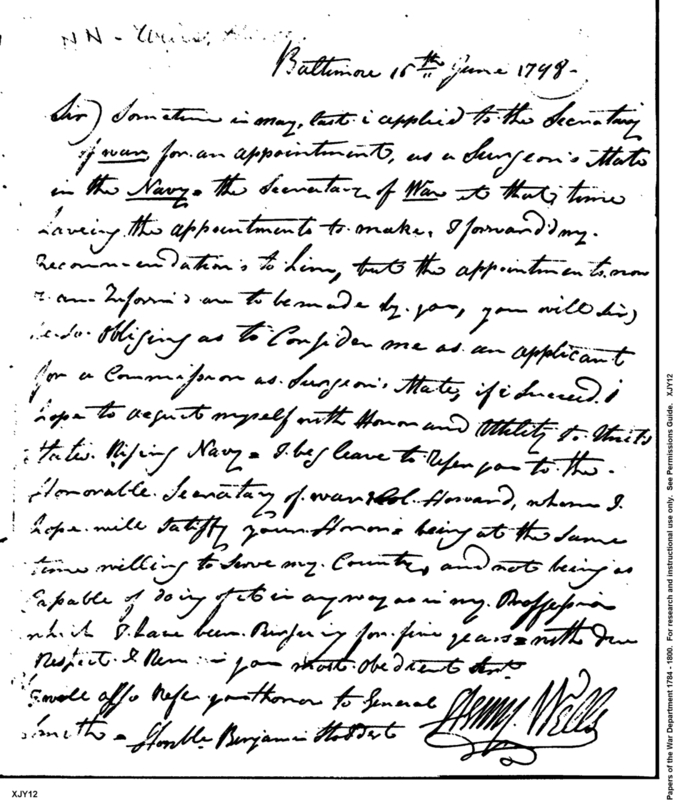 NN -
Baltimore 16th June 1798-
Sir) Sometime in may, last i applied to the Secretary
of war for an appointment, as a Surgeon's Mate
in the Navy = the Secretary of War at that time
haveing the appointments to make, I forward'd my.
Recommendation's to him, but the appointments now
I am Inform'd are to be made by. you, you will Sir)
be so. obliging as to Consider me as an applicant
for a Commission as. Surgeon's Mate, if i Succeed. I
hope to acquit myself with Honor and Utility to. Unit'd
States. Rising Navy = I beg leave to refer you to the.
Honorable. Secretary of. war & Col. Howard, whome I.
hope. will Satisfy your. Honor = being at the Same
time willing to Serve my. Country, and not being as
Capable of doing of it in any way as in my. Proffession
which I have been. Pursueing for. five years = with due
Respect. I Remain your most Obedient Servt
I will also Refer your honor to General
Smith = Henry. Wells
Honble. Benjamin Stoddert
Papers of the War Department 1784 - 1800. For research and instructional use only. See Permissions Guide. XJY12
XJY12